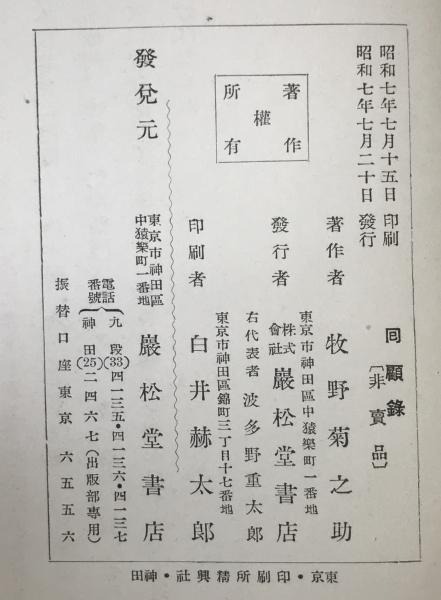 昭和七年七月十五日 印刷
昭和七年七月二十日 發行
回顧錄
〔非賣品〕
著作權所有
著作者 牧野菊之助
東京市神田區中猿樂町一番地
發行者 株式會社 巖松堂書店
右代表者 波多野重太郎
東京市神田區錦町三丁目十七番地
印刷者 白井赫太郎
發兌元
東京市神田區中猿樂町一番地
巖松堂書店
電話番號
九段(33)四一三五・四一三六・四一三七
神田(25)二四六七(出版部專用)
振替口座東京六五五六
東京・印刷所精興社・神田